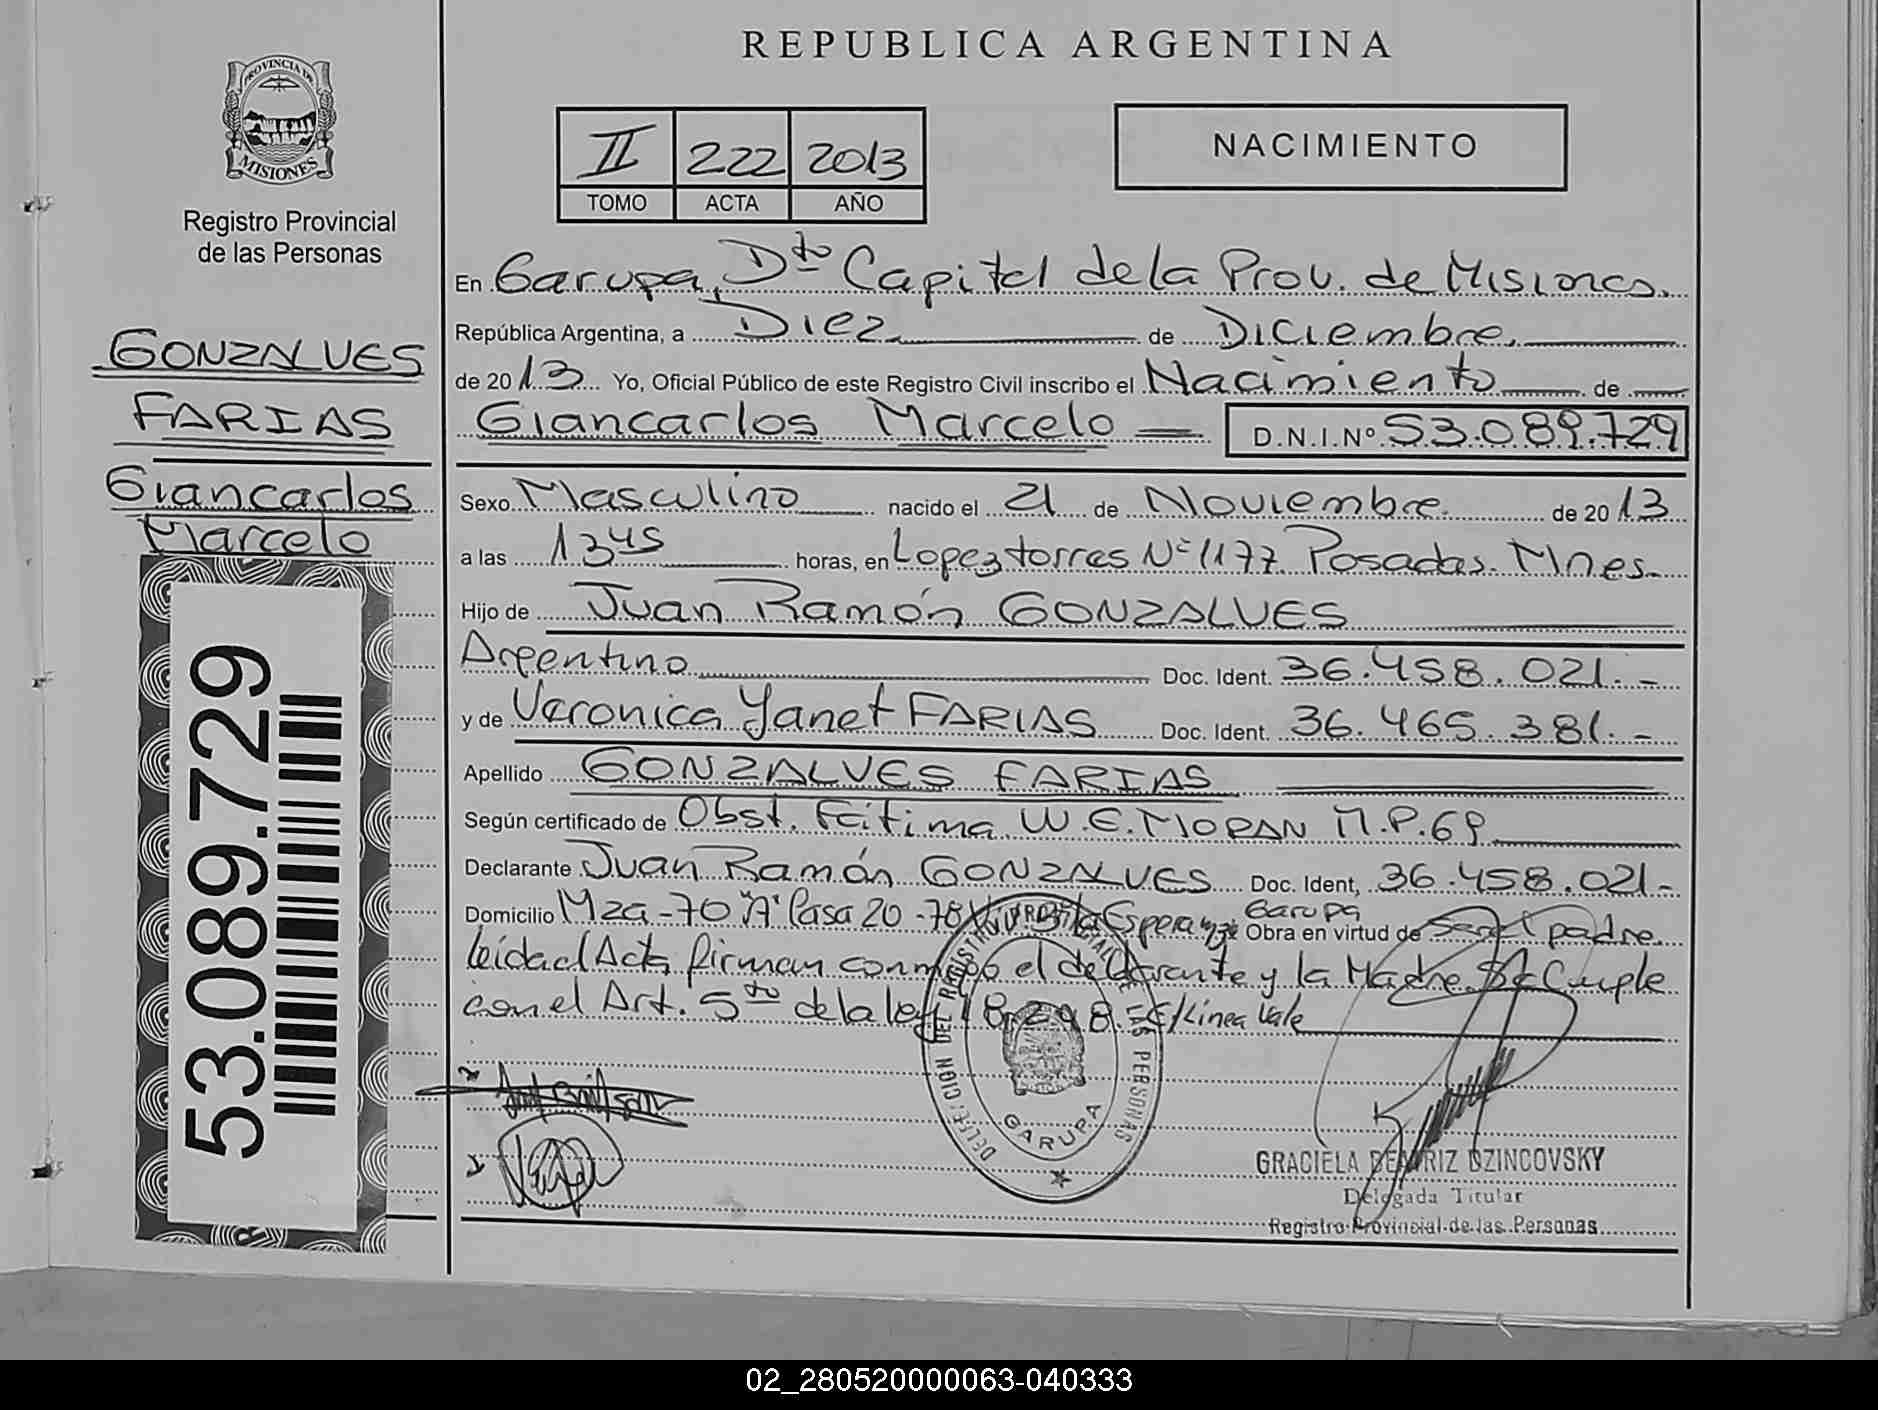 REPUBLICA ARGENTINA
PROVINCIA DE
MISIONES
Registro Provincial
de las Personas
II 222 2013
TOMO ACTA AÑO
NACIMIENTO
GONZALVES
FARIAS
Giancarlos
Marcelo
53.089.729
En Garupa, Dto Capital de la Prov. de Misiones.
República Argentina, a Diez de Diciembre.
de 2013 Yo, Oficial Público de este Registro Civil inscribo el Nacimiento de
Giancarlos Marcelo D.N.I.Nº 53.089.729
Sexo Masculino nacido el 21 de Noviembre de 2013
a las 13 45 horas, en Lopez torres Nº 1177 Posadas. Mnes.
Hijo de Juan Ramón GONZALVES
Argentino Doc. Ident. 36.458.021.-
y de Veronica Yanet FARIAS Doc. Ident. 36.465.381.-
Apellido GONZALVES FARIAS
Según certificado de Obst. Fátima W.E. MORAN M.P. 69
Declarante Juan Ramón GONZALVES Doc. Ident, 36.458.021-
Garupa
Domicilio Mza-70 "A" Casa 20-78 Viv. B° la Esperanza Obra en virtud de ser el padre.
leida el Acta firman conmigo el declarante y la Madre. Se Cumple
con el Art. 5to de la ley 18.248. E/Linea Vale
DELEGACION DEL REGISTRO PROVINCIAL DE LAS PERSONAS
MISIONES
GARUPA
GRACIELA BEATRIZ DZINCOVSKY
Delegada Titular
Registro Provincial de las Personas
02_280520000063-040333